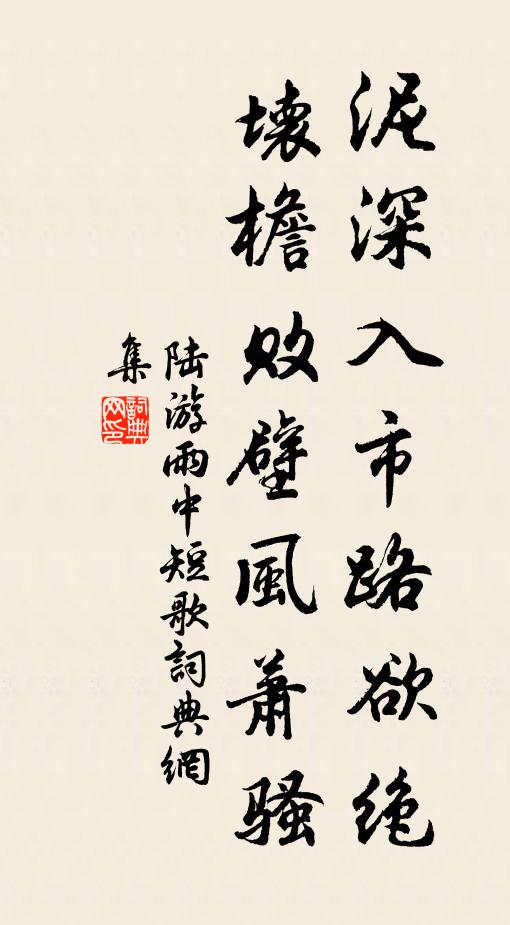 泥深入市路欲绝
壊檐败壁風萧骚
陆游雨中短歌詞典網
集
詞典
网印